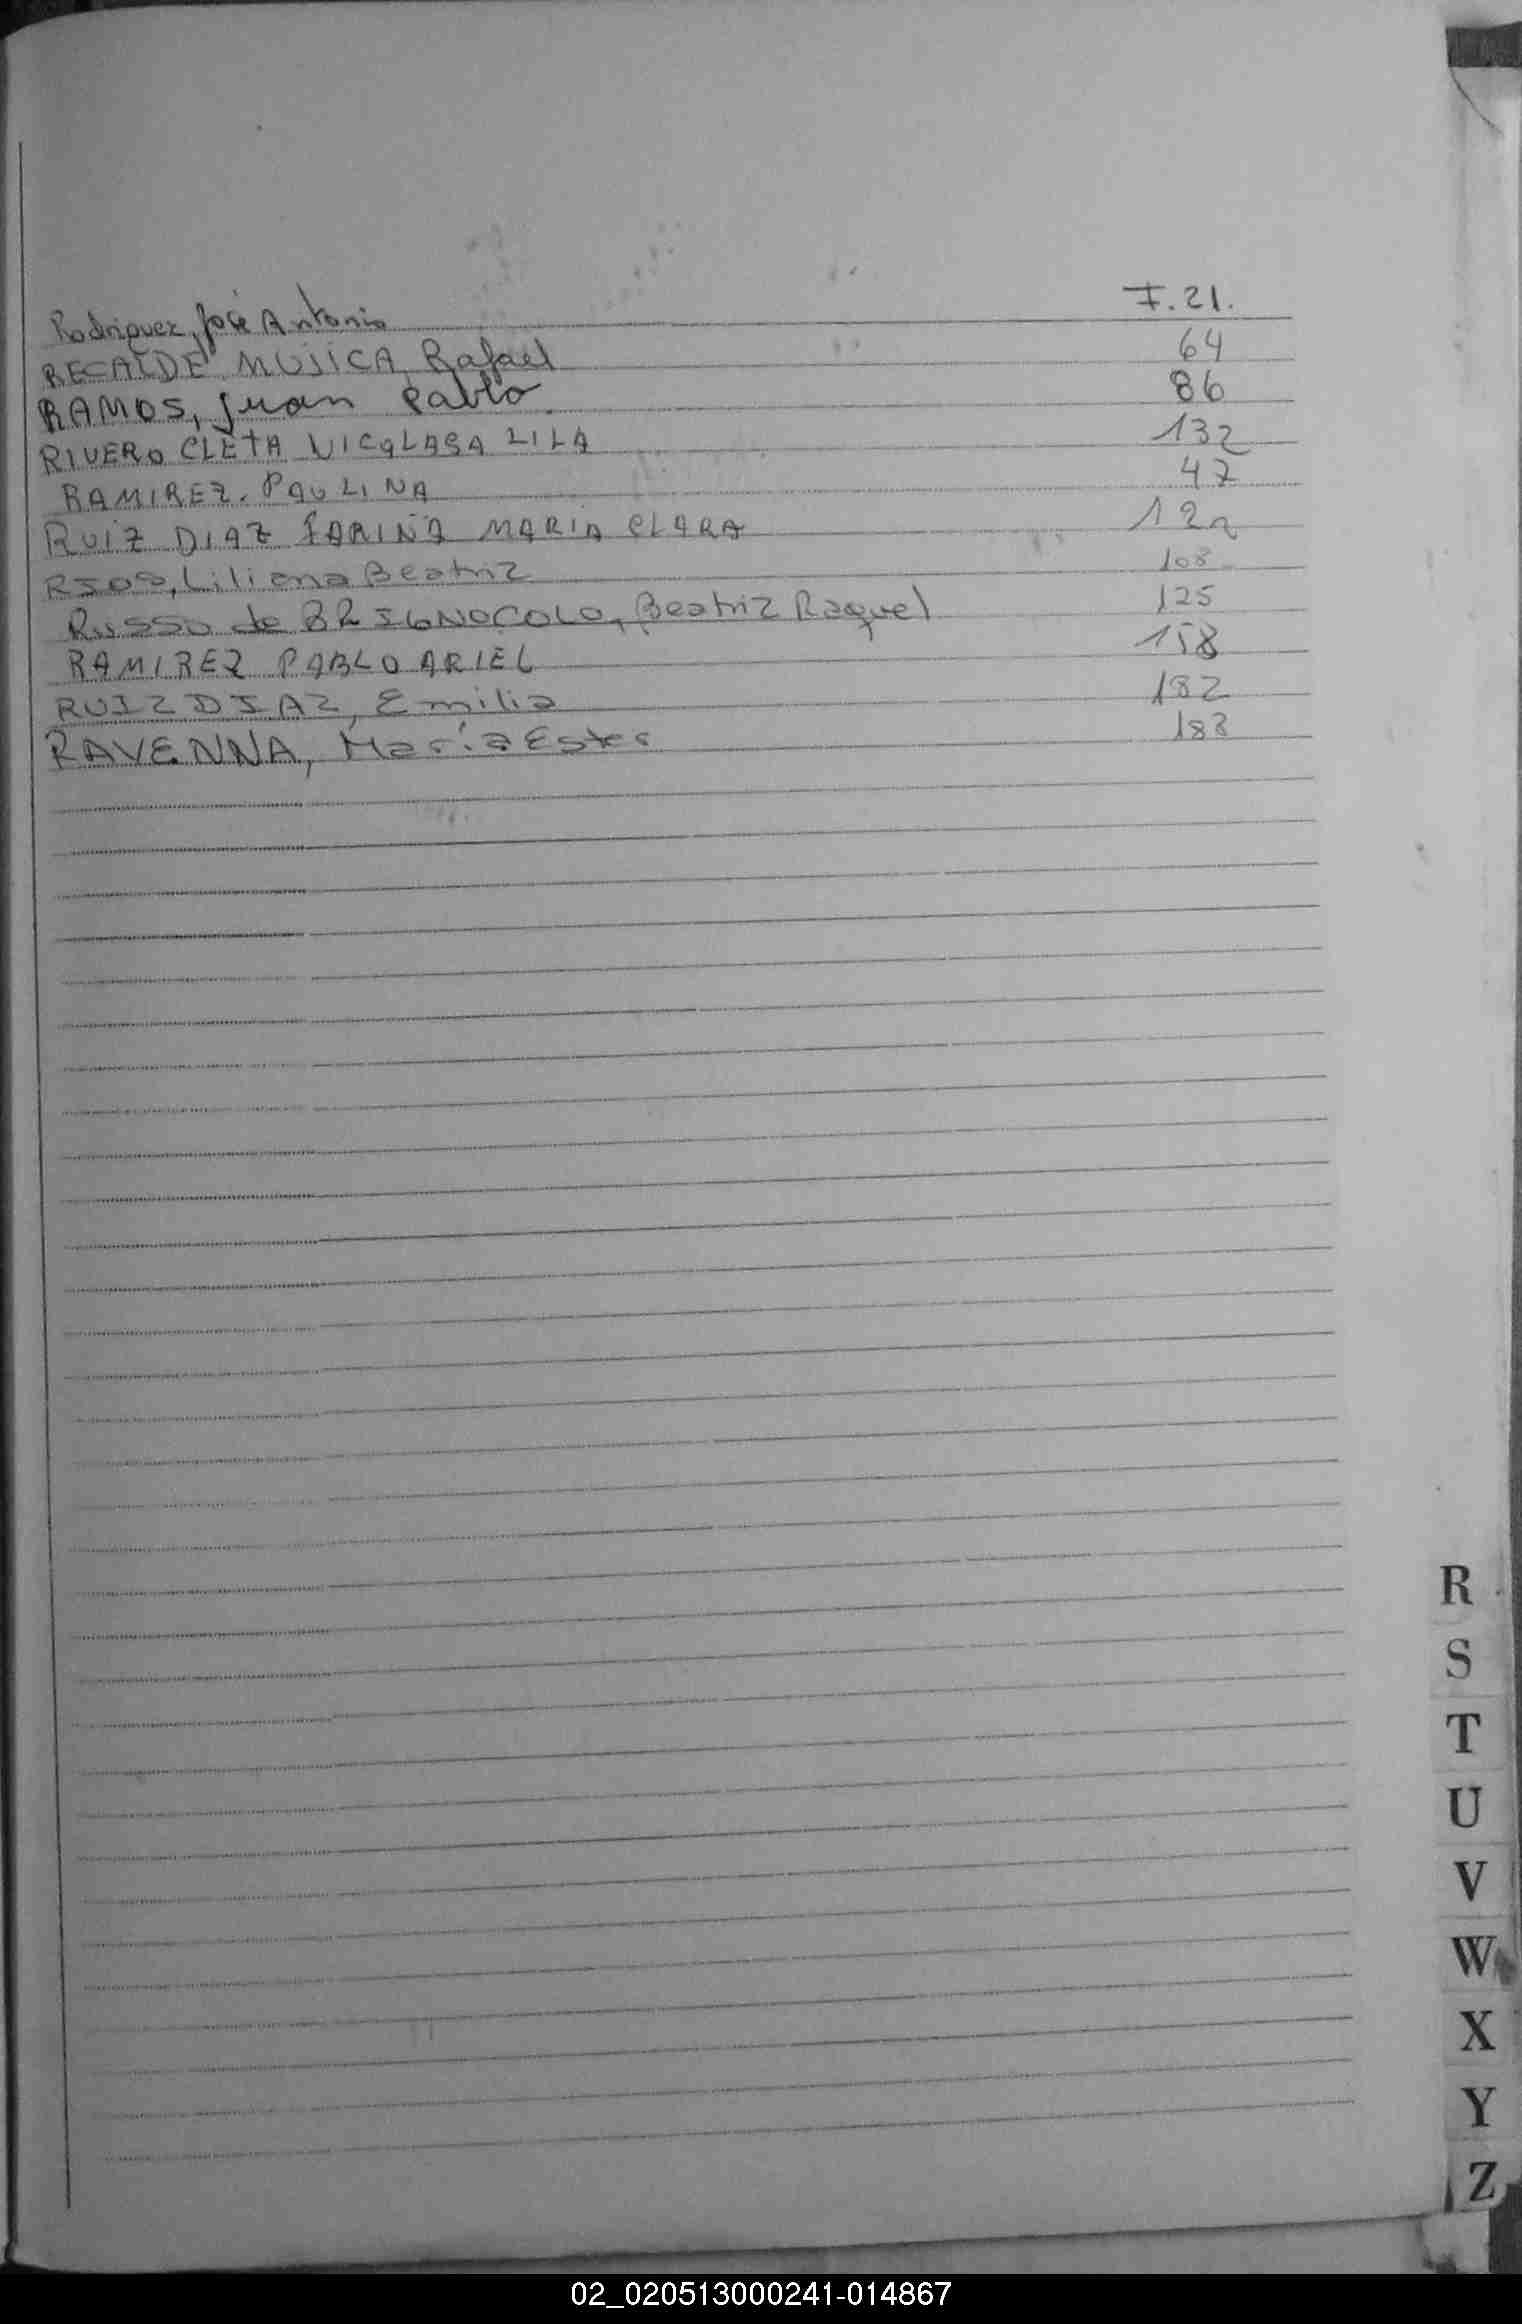 Rodriguez, José Antonio F. 21.
RECALDE MUJICA, Rafael 64
RAMOS, Juan Pablo 86
RIVERO CLETA NICOLASA LILA 132
RAMIREZ. PAULINA 47
RUIZ DIAZ FARIÑA MARIA CLARA
RIOS, Liliana Beatriz 108
Russo de BRIGNOCOLO, Beatriz Raquel 125
RAMIREZ PABLO ARIEL 158
RUIZ DIAZ, Emilia 182
RAVENNA, María Ester 188
R
S
T
U
V
W
X
Y
Z
02_020513000241-014867